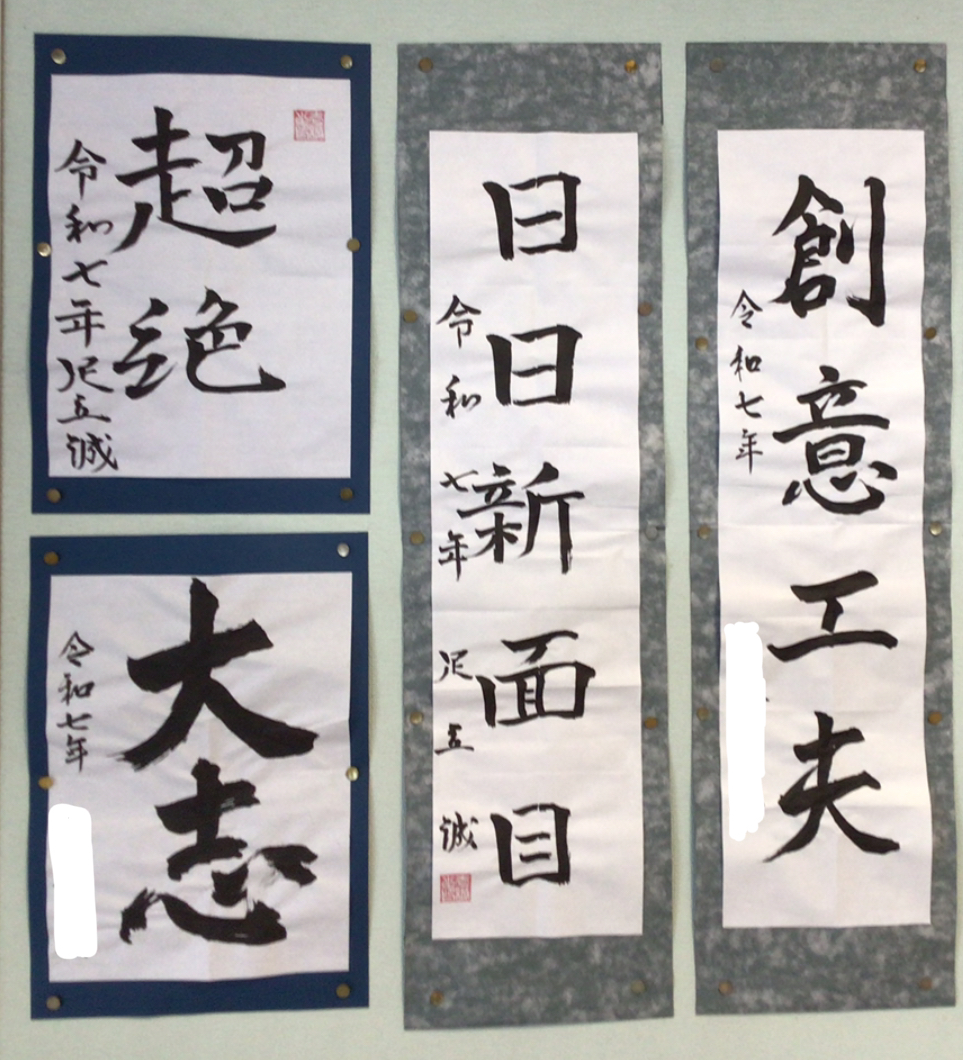 創意工夫
令和七年
日日新面目
令和七年 足立誠
超絶
令和七年 足立誠
大志
令和七年